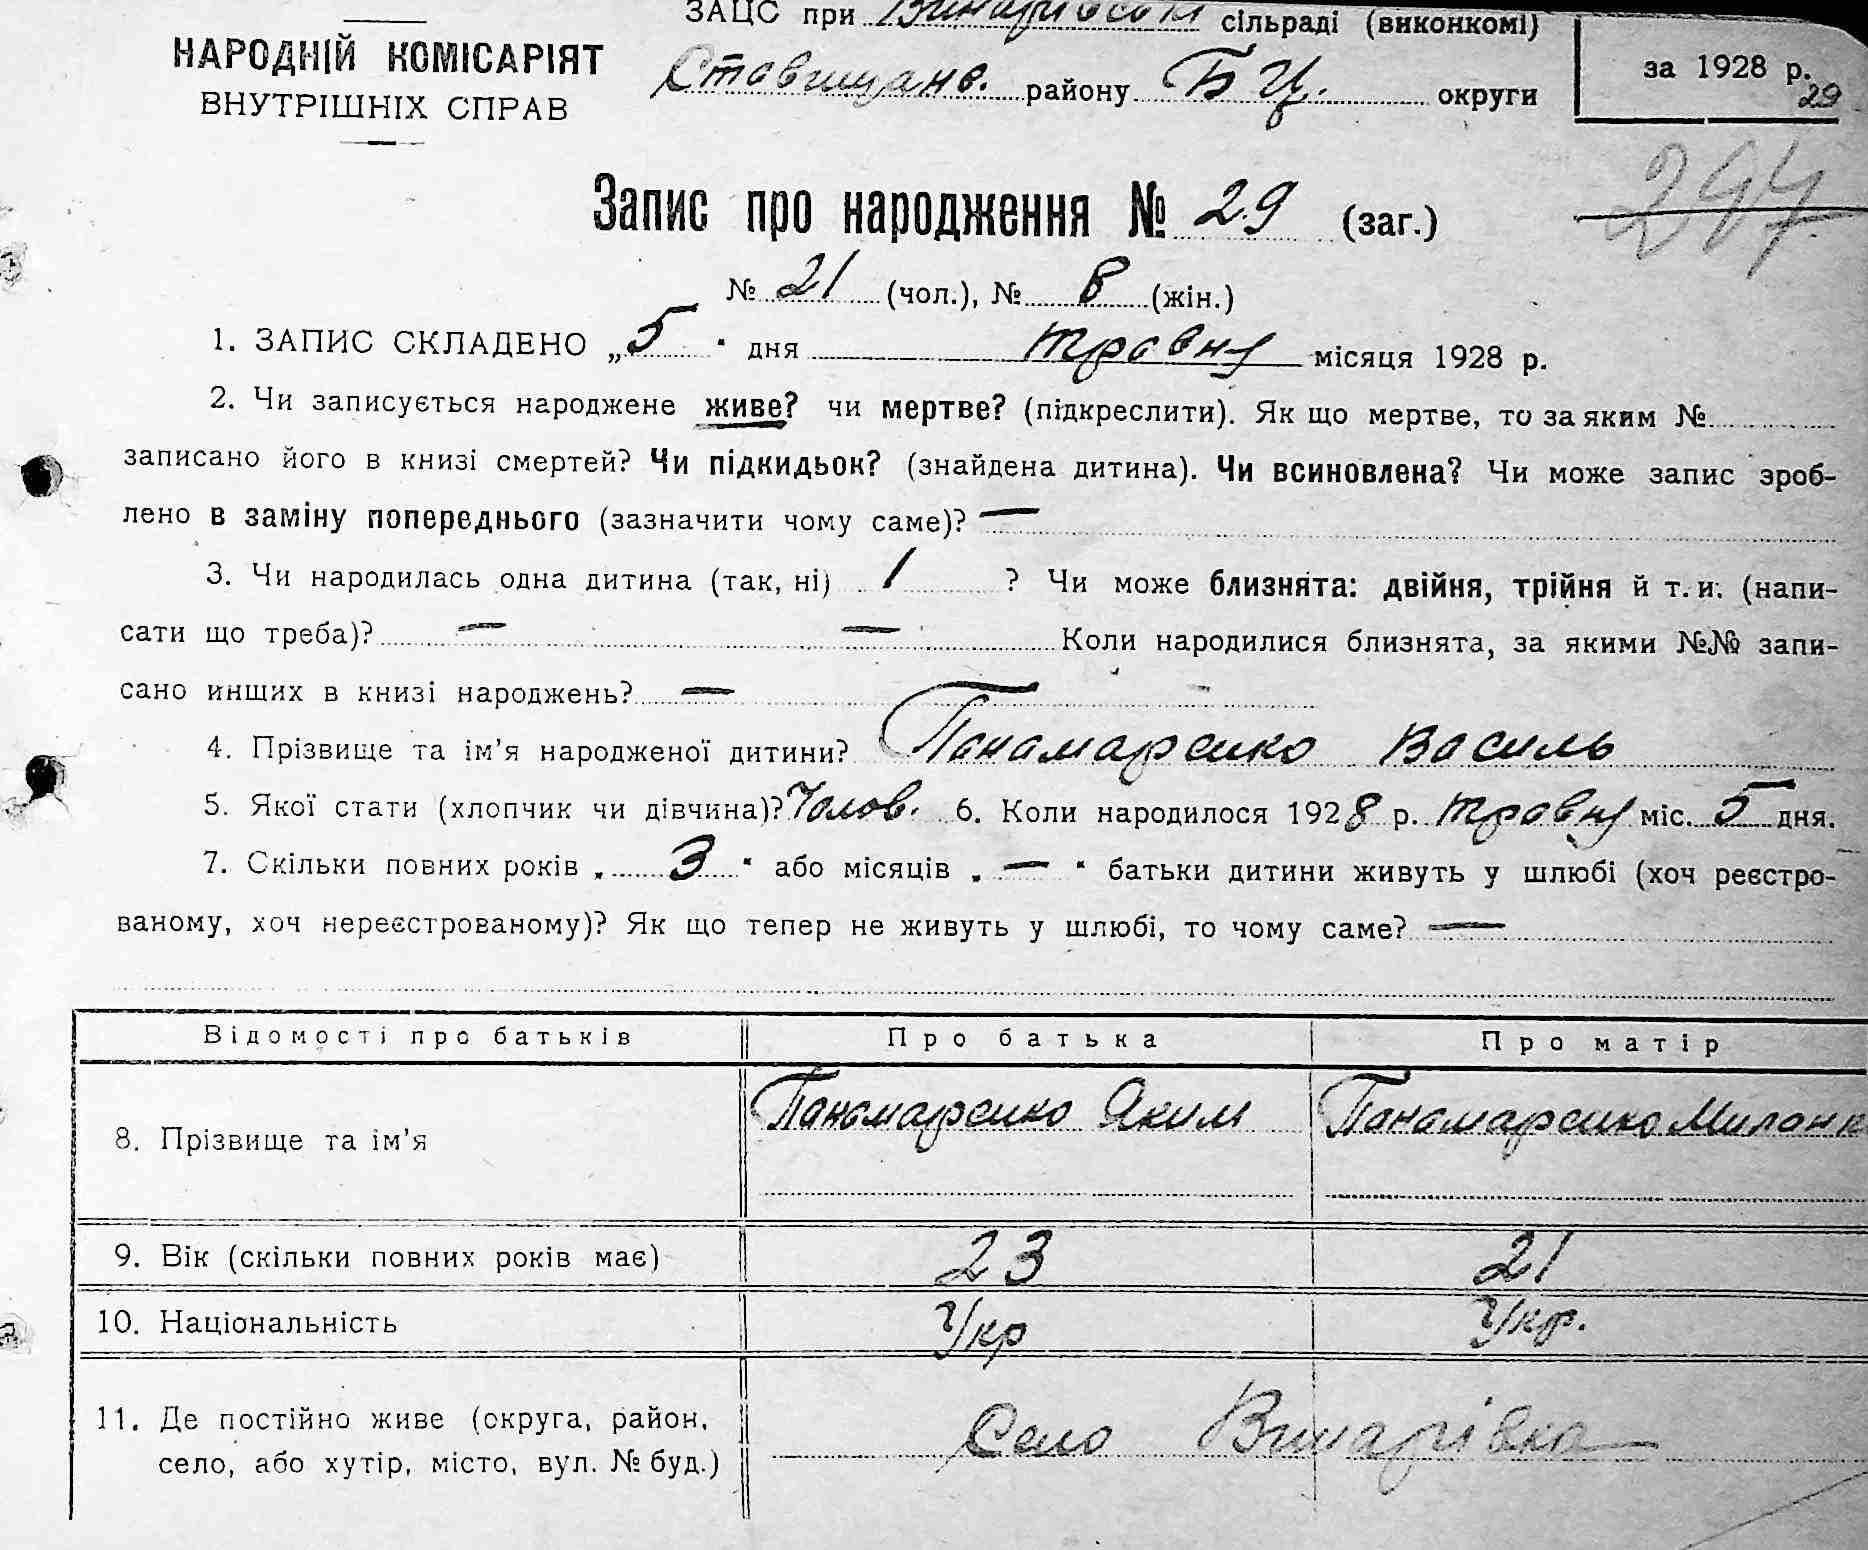 ЗАЦС при Винарівській сільраді (виконкомі)
НАРОДНІЙ КОМІСАРІЯТ
ВНУТРІШНІХ СПРАВ
Ставищанв. району Б Ц. округи
за 1928 р.
29
294
Запис про народження № 29 (заг.)
№ 21 (чол.), № 8 (жін.)
1. ЗАПИС СКЛАДЕНО „5“ дня травня місяця 1928 р.
2. Чи записується народжене живе? чи мертве? (підкреслити). Як що мертве, то за яким №
записано його в книзі смертей? Чи підкидьок? (знайдена дитина). Чи всиновлена? Чи може запис зроб-
лено в заміну попереднього (зазначити чому саме)? —
3. Чи народилась одна дитина (так, ні) 1 ? Чи може близнята: двійня, трійня й т. и. (напи-
сати що треба)? — — Коли народилися близнята, за якими №№ запи-
сано инших в книзі народжень? —
4. Прізвище та ім’я народженої дитини? Панамаренко Василь
5. Якої стати (хлопчик чи дівчина)? Чолов. 6. Коли народилося 1928 р. травня міс. 5 дня.
7. Скільки повних років „3“ або місяців „—“ батьки дитини живуть у шлюбі (хоч реєстро-
ваному, хоч нереєстрованому)? Як що тепер не живуть у шлюбі, то чому саме? —
Відомості про батьків Про батька Про матір
8. Прізвище та ім’я Панамаренко Яким Панамаренко
9. Вік (скільки повних років має) 23 21
10. Національність Укр Укр.
11. Де постійно живе (округа, район,
село, або хутір, місто, вул. № буд.) Село Винарівка